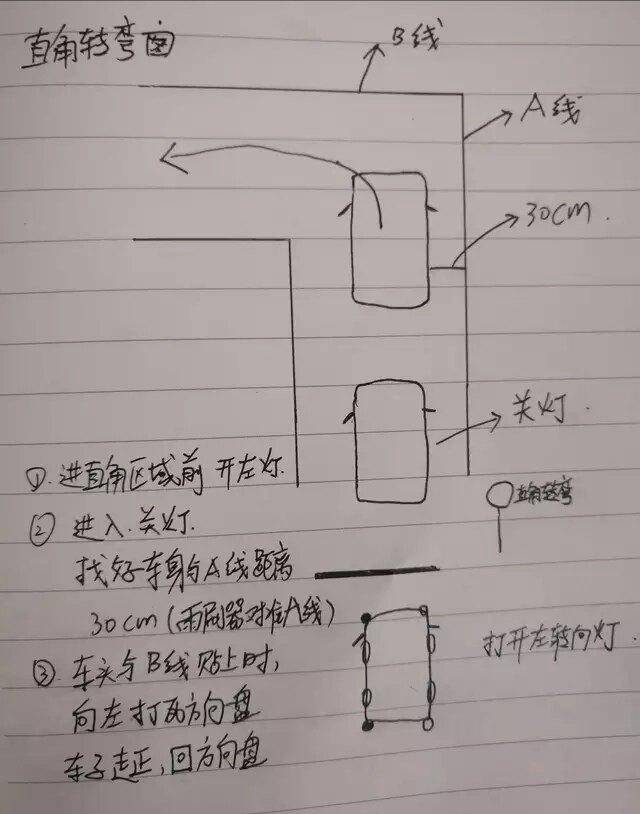 直角转弯图
B线
A线
30cm.
关灯.
①.进直角区域前 开左灯.
直角转弯
② 进入.关灯.
找好车身与A线距离
30cm(雨刷器对准A线)
打开左转向灯.
③.车头与B线贴上时,
向左打死方向盘
车子走正,回方向盘